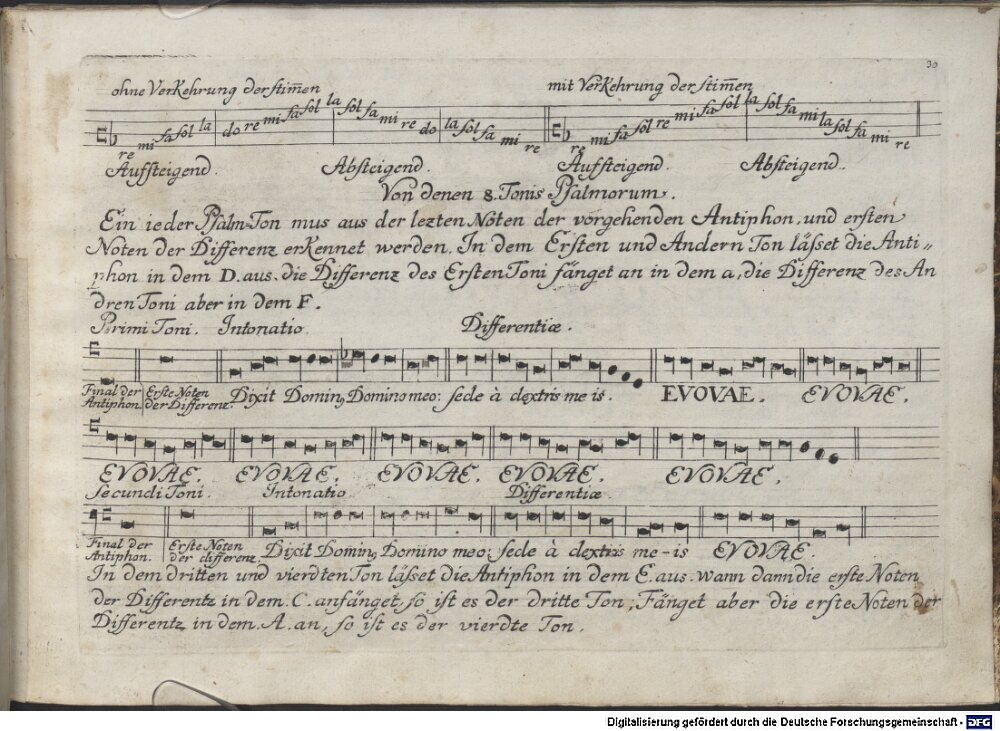 30
ohne Verkehrung der stim̄en mit Verkehrung der stim̄en
re mi fa sol la do re mi fa sol la sol fa mi re do la sol fa mi re re mi fa sol re mi fa sol la sol fa mi la sol fa mi re
Aufsteigend. Absteigend. Aufsteigend. Absteigend.
Von denen 8. Tonis Psalmorum.
Ein ieder Psalm-Ton mus aus der lezten Noten der vorgehenden Antiphon, und ersten
Noten der Differenz erkennet werden. In dem Ersten und Andern Ton lässet die Anti„
phon in dem D. aus. die Differenz des Ersten Toni fänget an in dem a, die Differenz des An
dren Toni aber in dem F.
Primi Toni. Intonatio. Differentiæ.
Final der Antiphon Erste Noten der Differenz. Dixit Domin9 Domino meo: sede à dextris me is. EVOVAE. EVOVAE.
EVOVAE. EVOVAE. EVOVAE. EVOVAE. EVOVAE.
Secundi Toni. Intonatio Differentiæ
Final der Antiphon. Erste Noten der differenz. Dixit Domin9 Domino meo: sede à dextris me-is EVOVAE.
In dem dritten und vierdten Ton lässet die Antiphon in dem E. aus. wann dann die erste Noten
der Differentz in dem. C. anfänget, so ist es der dritte Ton, Fänget aber die erste Noten der
Differentz in dem. A. an, so ist es der vierdte Ton.
Digitalisierung gefördert durch die Deutsche Forschungsgemeinschaft - DFG